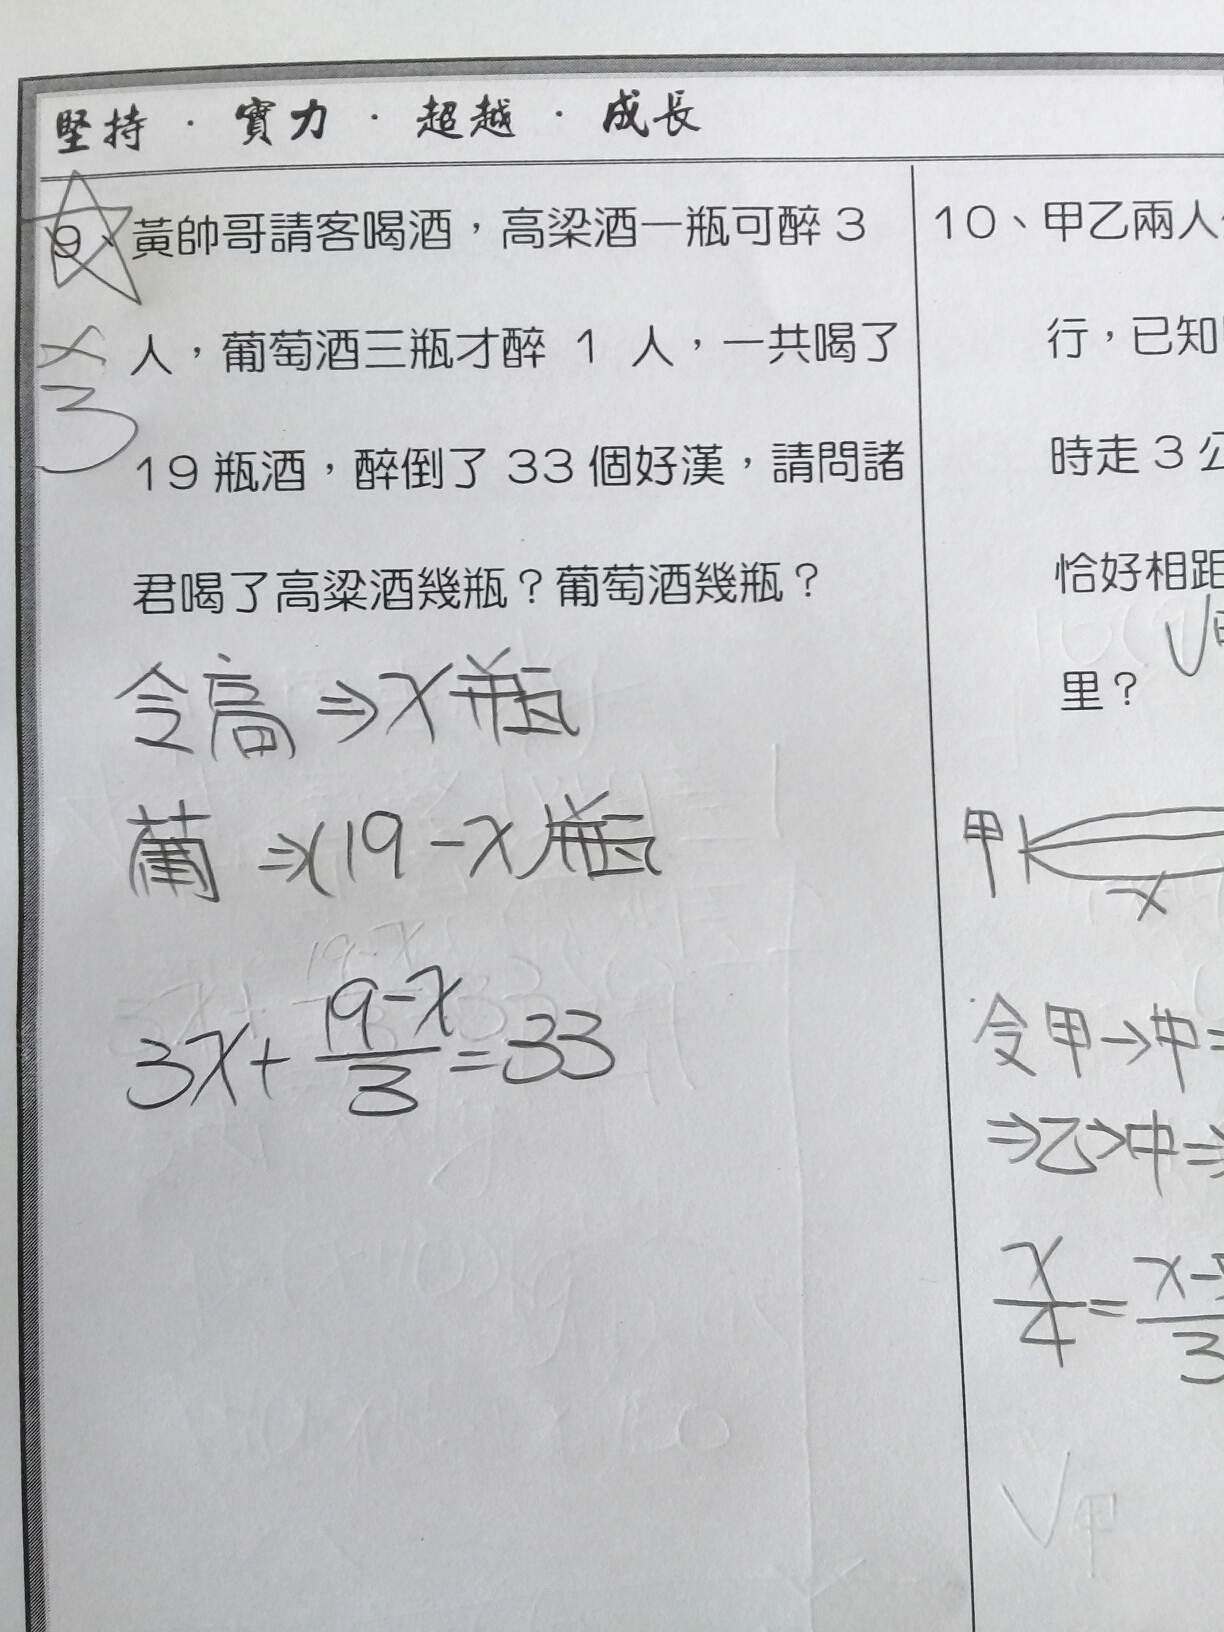 堅持 · 實力 · 超越 · 成長
9、黃帥哥請客喝酒，高粱酒一瓶可醉 3
人，葡萄酒三瓶才醉 1 人，一共喝了
19 瓶酒，醉倒了 33 個好漢，請問諸
君喝了高粱酒幾瓶？葡萄酒幾瓶？
x
3
令高⇒x瓶
葡⇒(19-x)瓶
3x+(19-x)/3=33
10、甲乙兩人
行，已知
時走 3 公
恰好相距
里？
甲
x
令甲→中=
⇒乙→中⇒
x/4=x-
3
V甲